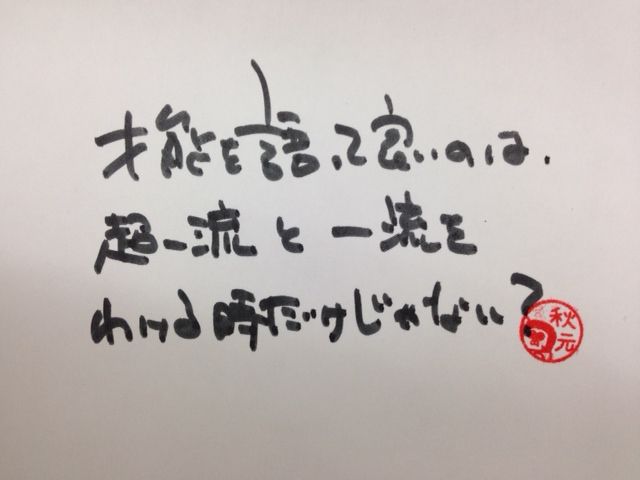 才能を語って良いのは、
超一流と一流を
わける時だけじゃない?
秋元